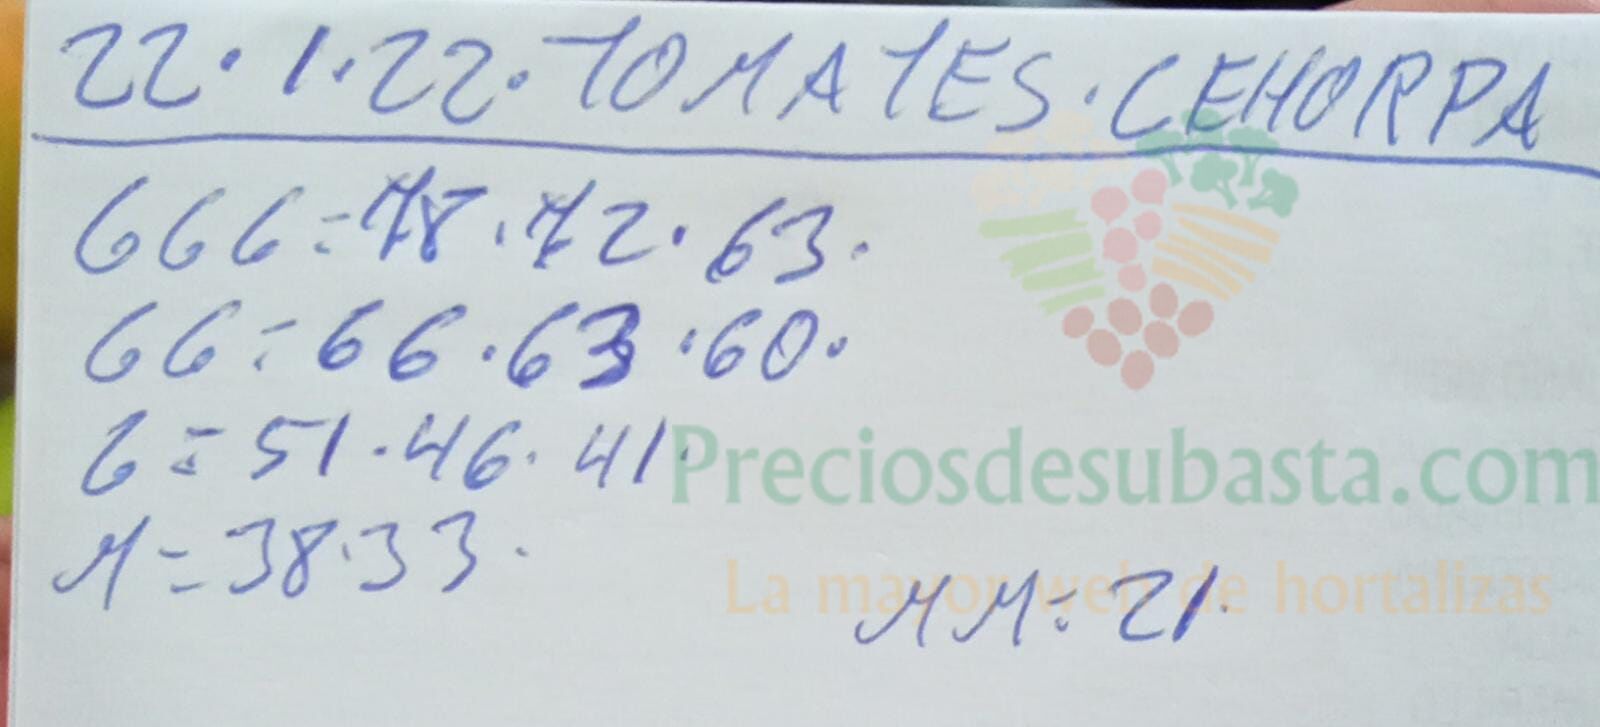 22.1.22.TOMATES.CEHORPA
GGG=78.72.63.
GG=66.63.60.
G=51.46.41.
Preciosdesubasta.com
M=38.33.
La mayor web de hortalizas
MM=21.